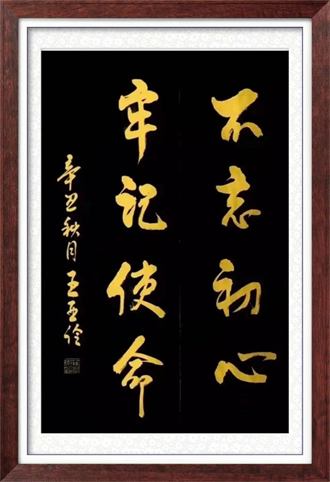 不忘初心
牢记使命
辛丑秋月王亚伶